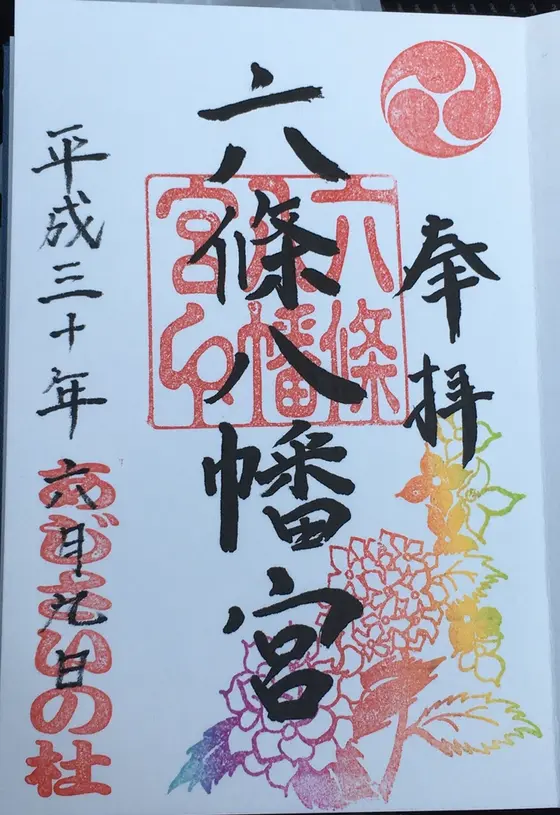 奉拝
六條八幡宮
六條
八幡
宮印
平成三十年六月九日
あじさいの杜